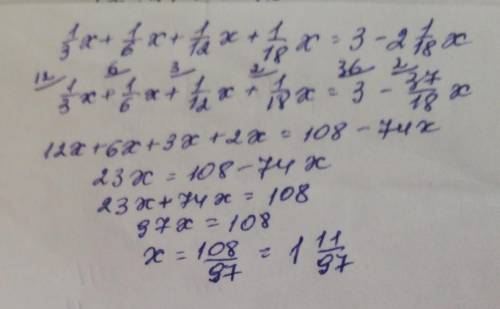 1/3 x + 1/6 x + 1/12 x + 1/18 x = 3 - 2 1/18 x
12 6 3 2 36 2
1/3 x + 1/6 x + 1/12 x + 1/18 x = 3 - 37/18 x
12x + 6x + 3x + 2x = 108 - 74x
23x = 108 - 74x
23x + 74x = 108
97x = 108
x = 108/97 = 1 11/97